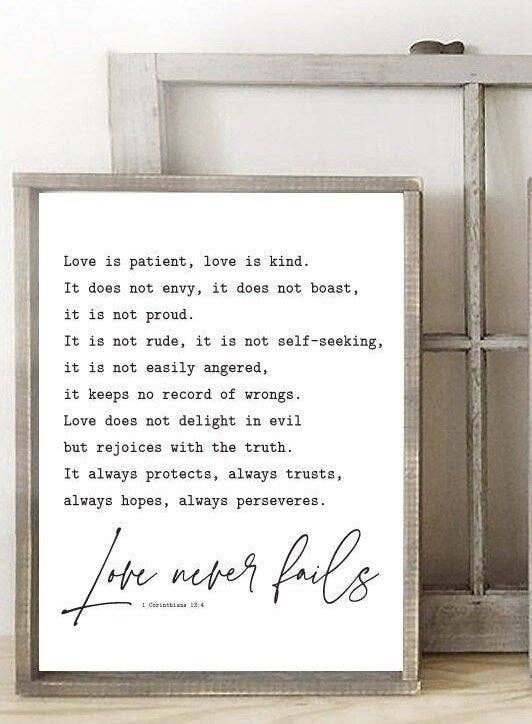 Love is patient, love is kind.
It does not envy, it does not boast,
it is not proud.
It is not rude, it is not self-seeking,
it is not easily angered,
it keeps no record of wrongs.
Love does not delight in evil
but rejoices with the truth.
It always protects, always trusts,
always hopes, always perseveres.
Love never fails
1 Corinthians 13:4